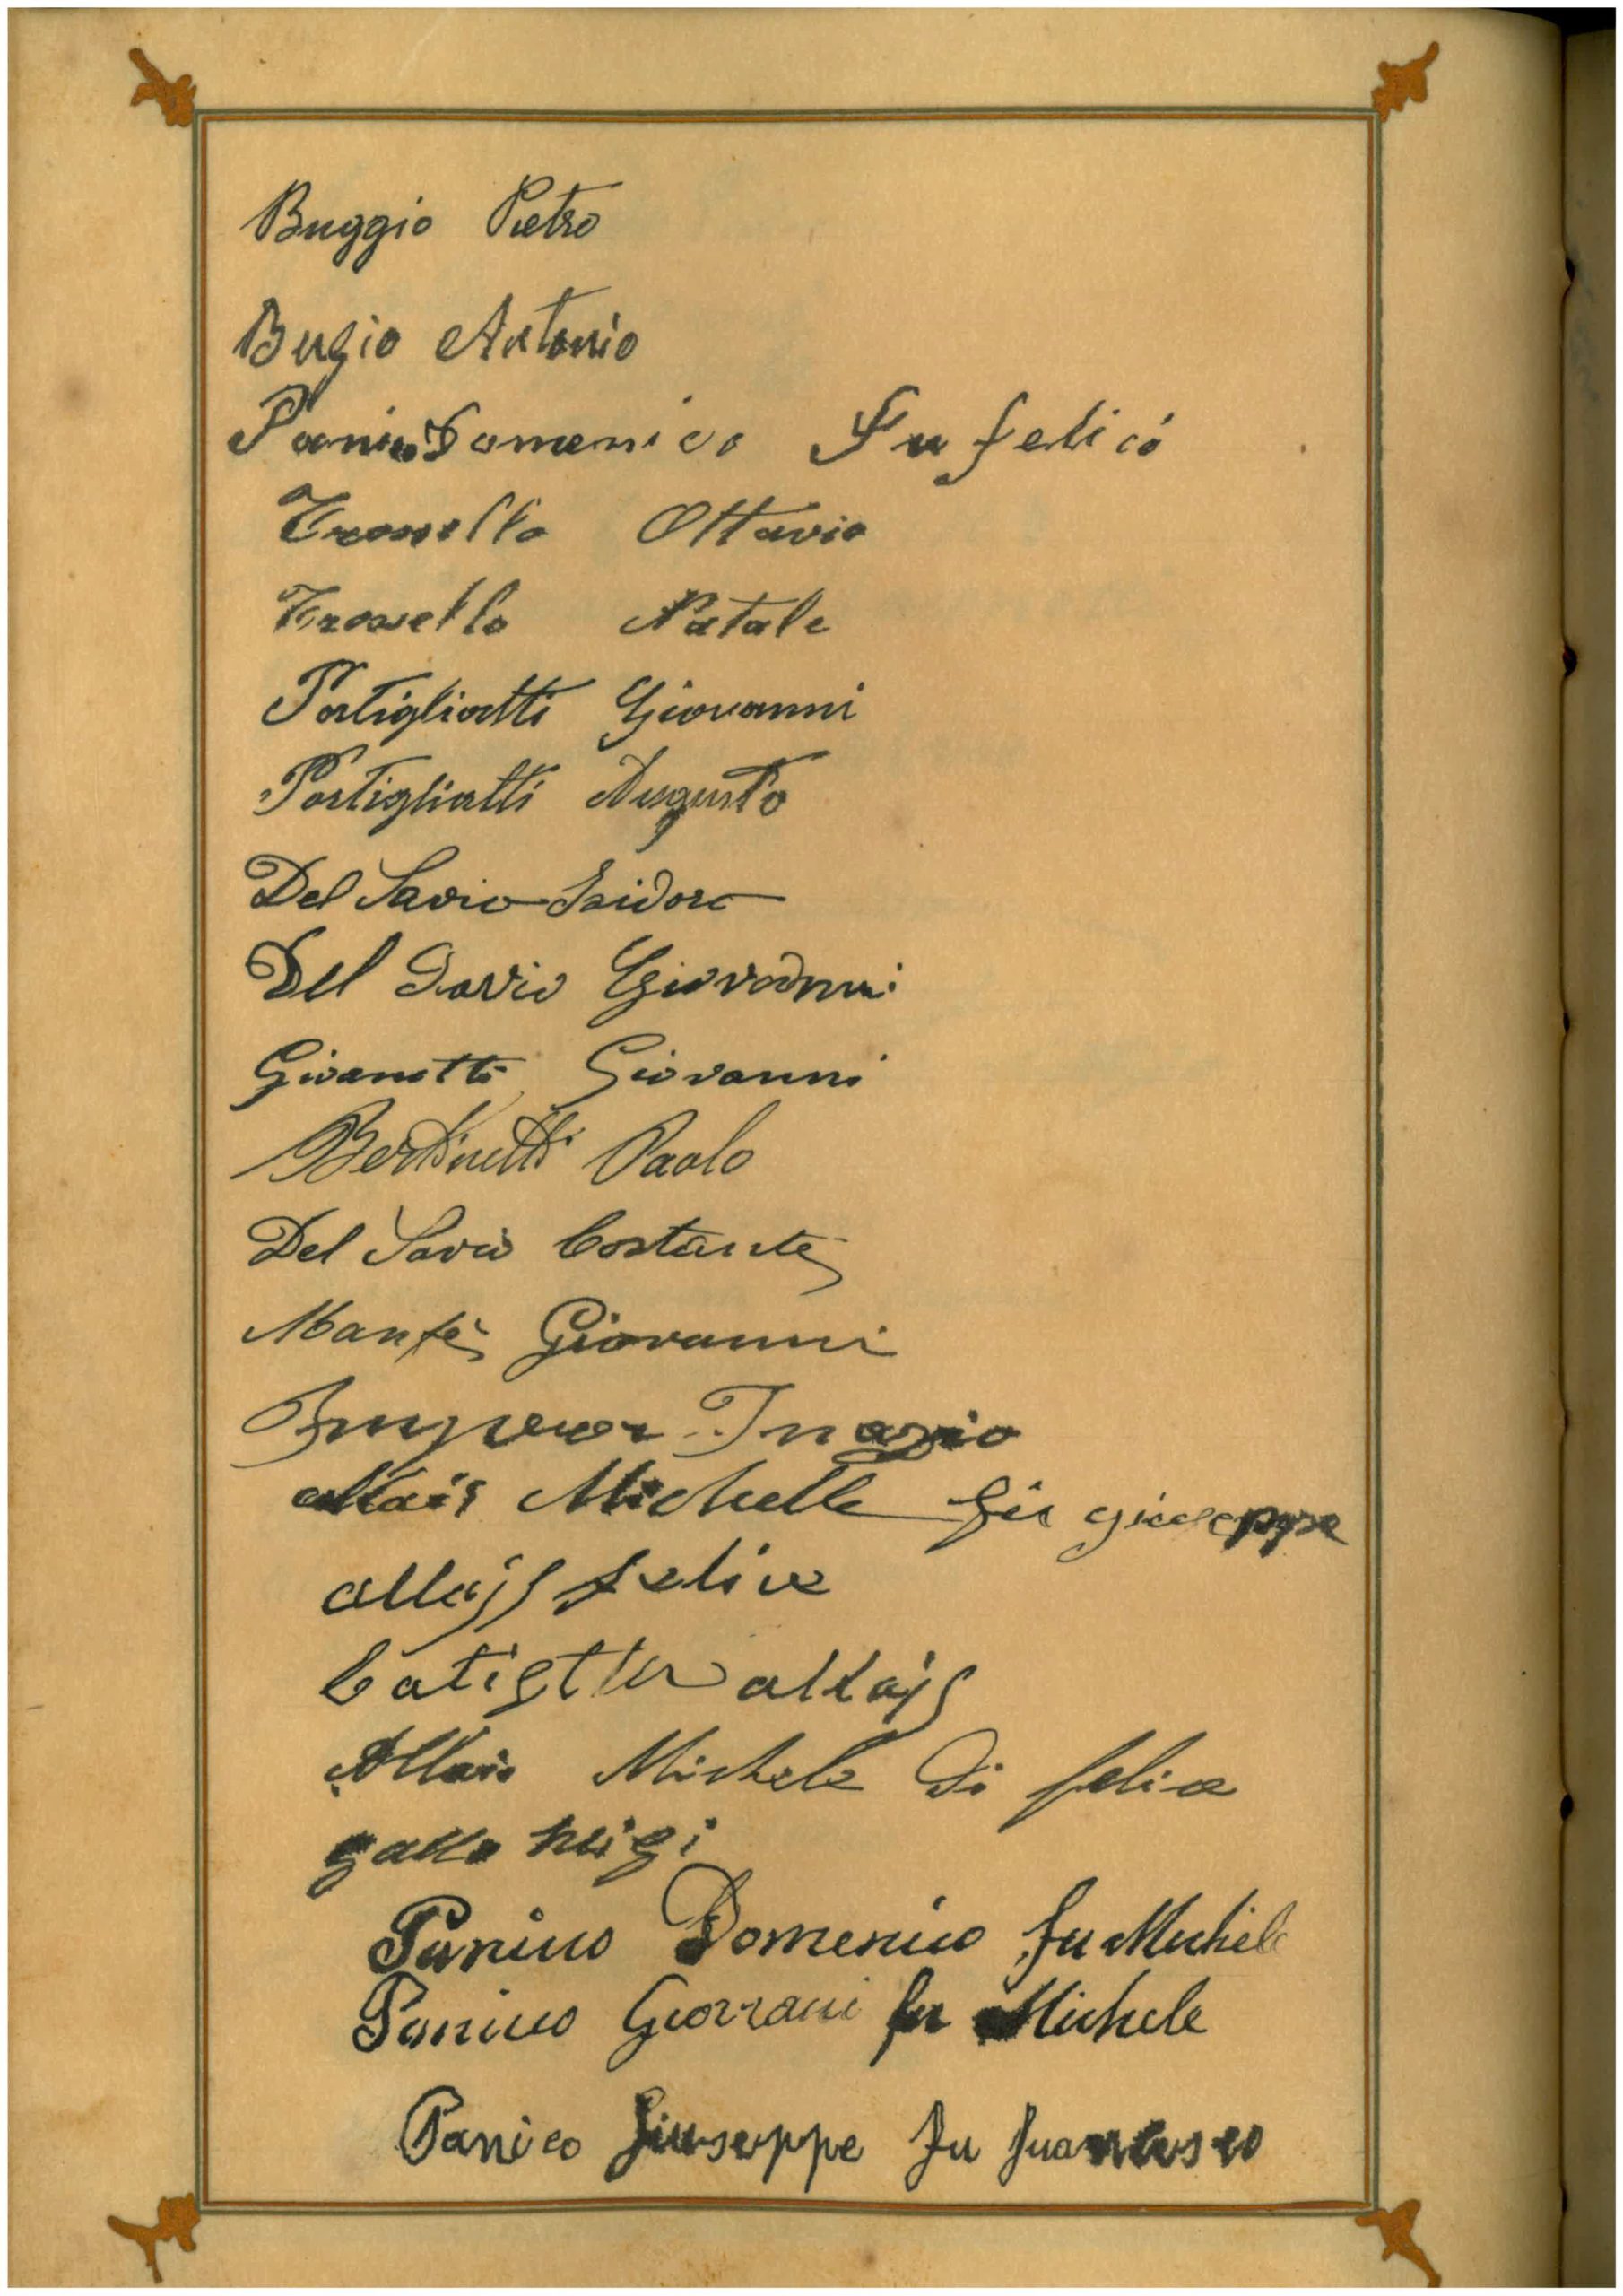 Buggio Pietro
Bugio Antonio
Panico Domenico Fu felici
Trosello Ottavio
Trosello Natale
Portigliatti Giovanni
Portigliatti Augusto
Del Savio Isidoro
Del Savio Giovanni
Givanetti Giovanni
Bertinetti Paolo
Del Savio Costante
Giovanni
allais Michelle fu giuseppe
allajs felice
batistta allajs
Allais Michele Di felice
gallo luigi
Panico Domenico fu Michele
Panico Giovani fu Michele
Panico Giuseppe fu